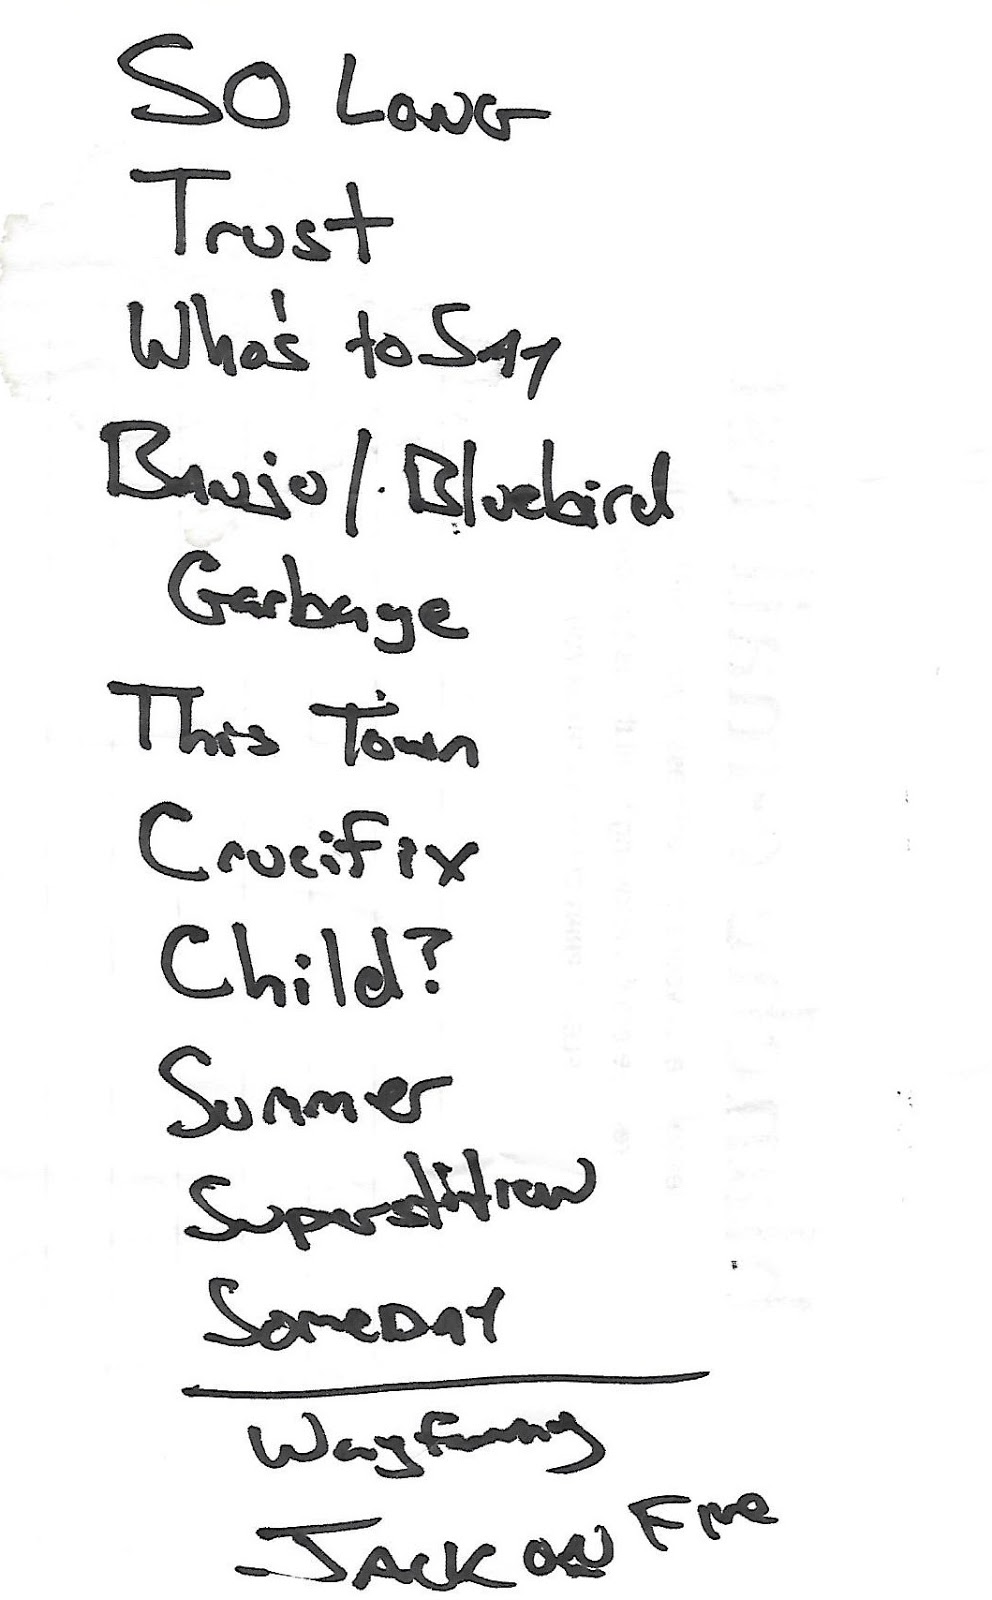 So Long
Trust
Who's to Say
Banjo/Bluebird
Garbage
This Town
Crucifix
Child?
Summer
Superstition
Someday
Jack on Fire